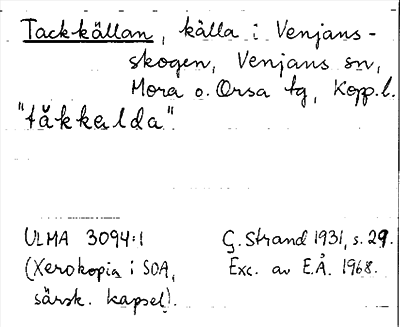 Tackkällan, källa i Venjans-
skogen, Venjans sn,
Mora o. Orsa tg, Kopp.l.
"tăkkalda".
ULMA 3094:1
(Xerokopia i SOA,
särsk. kapsel).
G. Strand 1931, s. 29.
Exc. av E.Å. 1968.